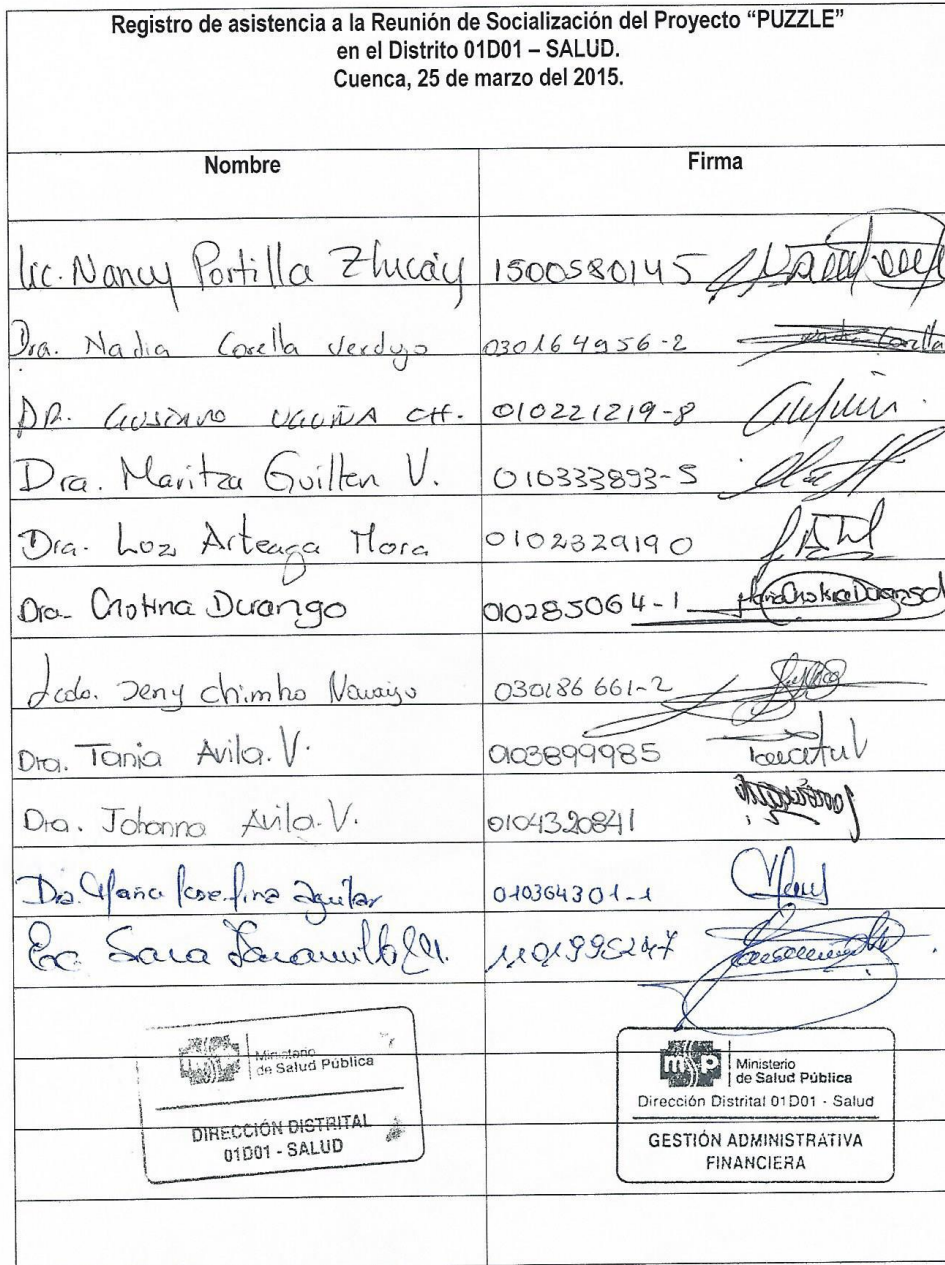 Registro de asistencia a la Reunión de Socialización del Proyecto “PUZZLE”
en el Distrito 01D01 – SALUD.
Cuenca, 25 de marzo del 2015.
Nombre Firma
Lic. Nancy Portilla Zhucay 1500580145
Dra. Nadia Corella Verdugo 030164956-2
DR. GUSTAVO VICUÑA CH. 010221219-8
Dra. Maritza Guillen V. 010333893-5
Dra. Luz Arteaga Mora 0102329190
Dra. Cristina Durango 010285064-1
Lcda. Jeny chimbo Naranjo 030186661-2
Dra. Tania Avila. V. 0103899985
Dra. Johanna Avila. V. 0104320841
Dra. María Josefina Aguilar 010364301-1
Ec. Sara Jaramillo
Ministerio
de Salud Pública
DIRECCIÓN DISTRITAL
01D01 - SALUD
msp Ministerio
de Salud Pública
Dirección Distrital 01D01 - Salud
GESTIÓN ADMINISTRATIVA
FINANCIERA